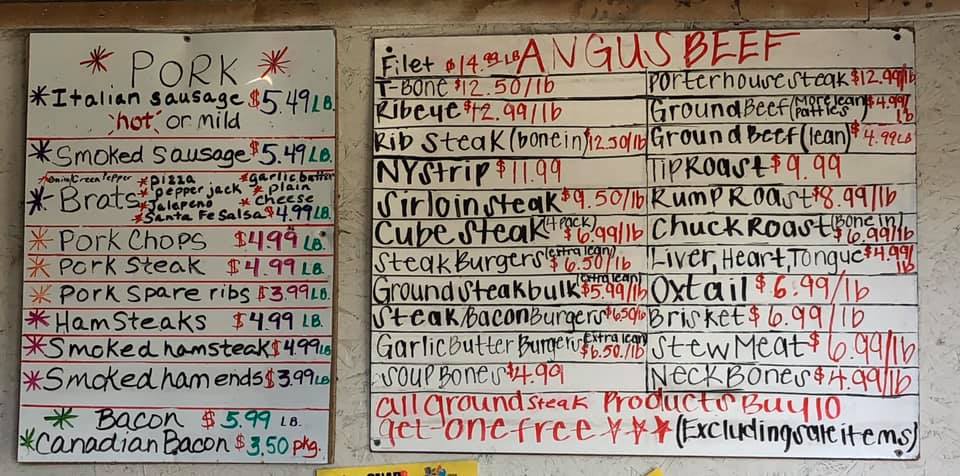 PORK
Italian sausage $5.49 LB.
"hot" or mild
Smoked Sausage $5.49 LB.
Onion Green Pepper pizza garlic butter
pepper jack plain
Brats Jalapeno cheese
Santa Fe Salsa $4.99 LB.
Pork Chops $4.99 LB.
Pork Steak $4.99 LB.
Pork Spare ribs $3.99 LB.
Ham Steaks $4.99 LB.
Smoked ham steak $4.99 LB
Smoked ham ends $3.99 LB
Bacon $5.99 LB.
Canadian Bacon $3.50 pkg.
Filet $14.99 LB ANGUS BEEF
T-Bone $12.50/lb
Ribeye $12.99/lb
Rib Steak (bone in) 12.50/lb
NY Strip $11.99
Sirloin Steak $9.50/lb
Cube Steak (4 pack) $6.99/lb
Steak Burgers (extra lean) $6.50/lb
Ground Steak bulk (extra lean) $5.99/lb
Steak/Bacon Burgers $6.50/lb
Garlic Butter Burgers (extra lean) $6.50/lb
Soup Bones $4.99
Porterhouse Steak $12.99/lb
Ground Beef (More lean patties) $4.99/lb
Ground Beef (lean) $4.99 LB
Tip Roast $9.99
Rump Roast $8.99/lb
Chuck Roast (Bone in) $6.99/lb
Liver, Heart, Tongue $4.99/lb
Oxtail $6.99/lb
Brisket $6.99/lb
Stew Meat $6.99/lb
Neck Bones $4.99/lb
all Ground Steak Products Buy 10
get one free ☆☆☆ (Excluding sale items)